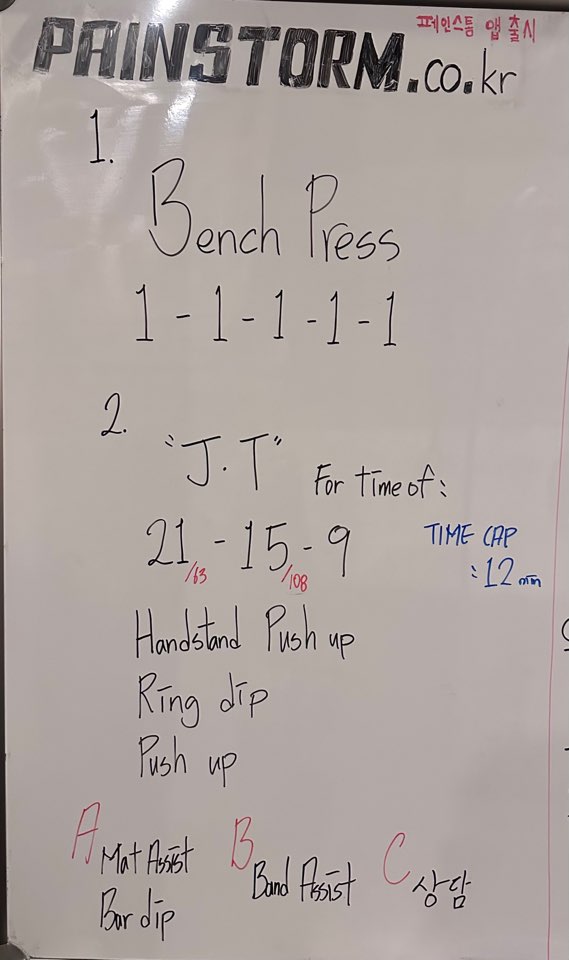 페인스톰 앱 출시
PAINSTORM.co.kr
1.
Bench Press
1 - 1 - 1 - 1 - 1
2.
"J.T" For time of :
21 - 15 - 9
/63 /108
TIME CAP
: 12 min
Handstand Push up
Ring dip
Push up
A Mat Assist
Bar dip
B Band Assist
C 상담